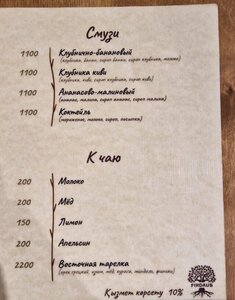 Смузи
1100 Клубнично-банановый
(клубника, банан, сироп банан, сироп клубника, молоко)
1100 Клубника киви
(клубника, киви, сироп клубника, сироп киви)
1100 Ананасово-малиновый
(ананас, малина, сироп ананас, сироп малина)
1100 Коктейль
(мороженое, молоко, сироп, посыпка)
К чаю
200 Молоко
200 Мёд
150 Лимон
200 Апельсин
2200 Восточная тарелка
(орех грецкий, изюм, мёд, курага, миндаль, финики)
Қызмет көрсету 10%
FIRDAUS